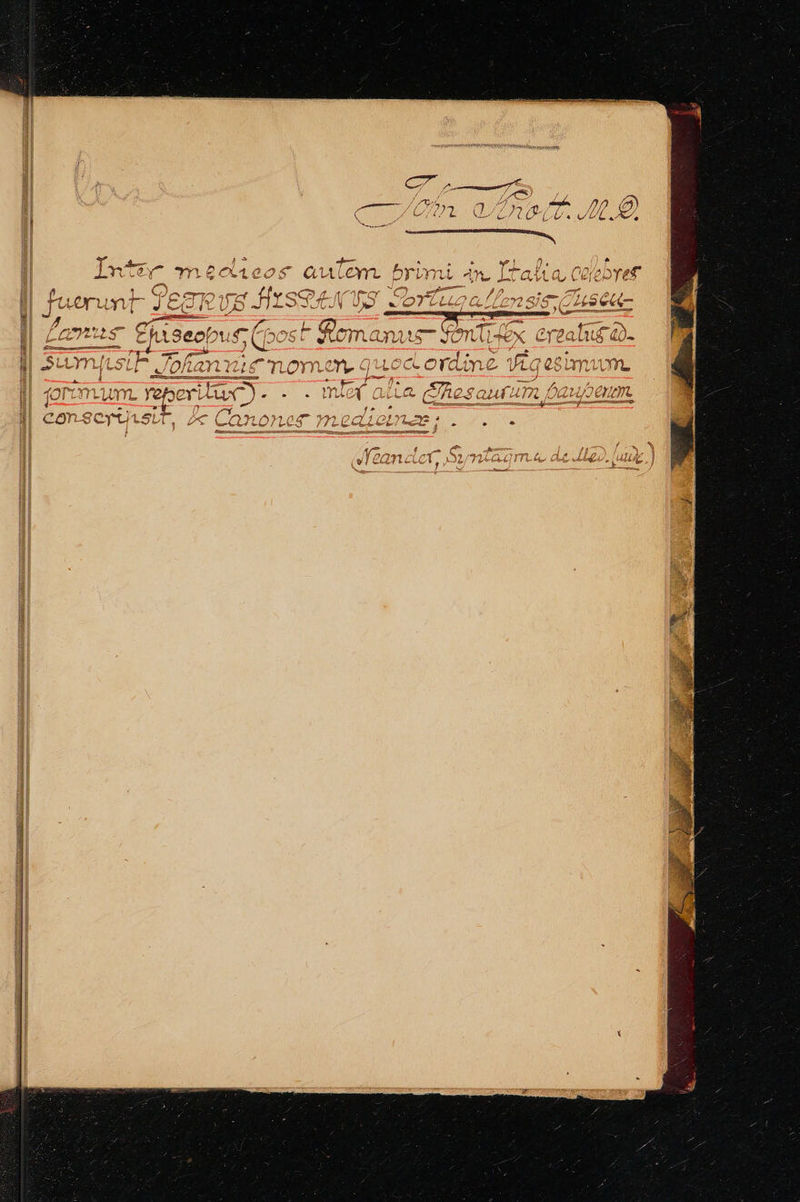 John Knott. M.D.
Inter medicos autem primi in Italia celebres
fuerunt PETRUS HISPANUS Portugallensis, Tuscu-
lanus Episcopus, (post Romanus Pontifex creatus ad-
sumpsit Johannis nomen, quod ordine vigesimum
primum reperitur) - - - inter alia Thesaurum pauperum
conscripsit, & Canones medicinæ; . . .
(Neander, Syntagma de Med.